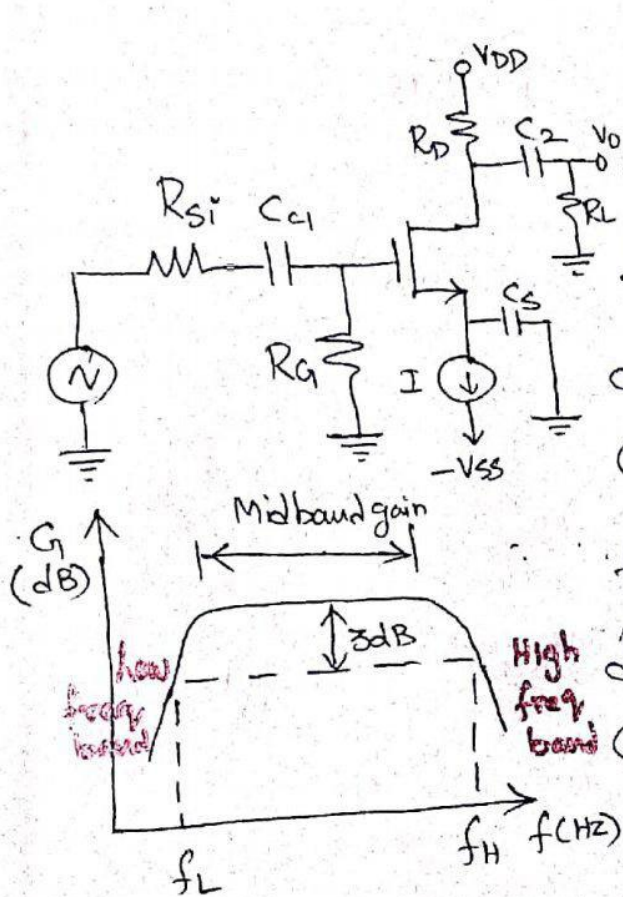 VDD
RD
C2
Vo
Rsi
Cc1
RL
RG
I
Cs
-VSS
Midband gain
G
(dB)
3dB
low
freq
band
High
freq
band
fL
fH
f(Hz)